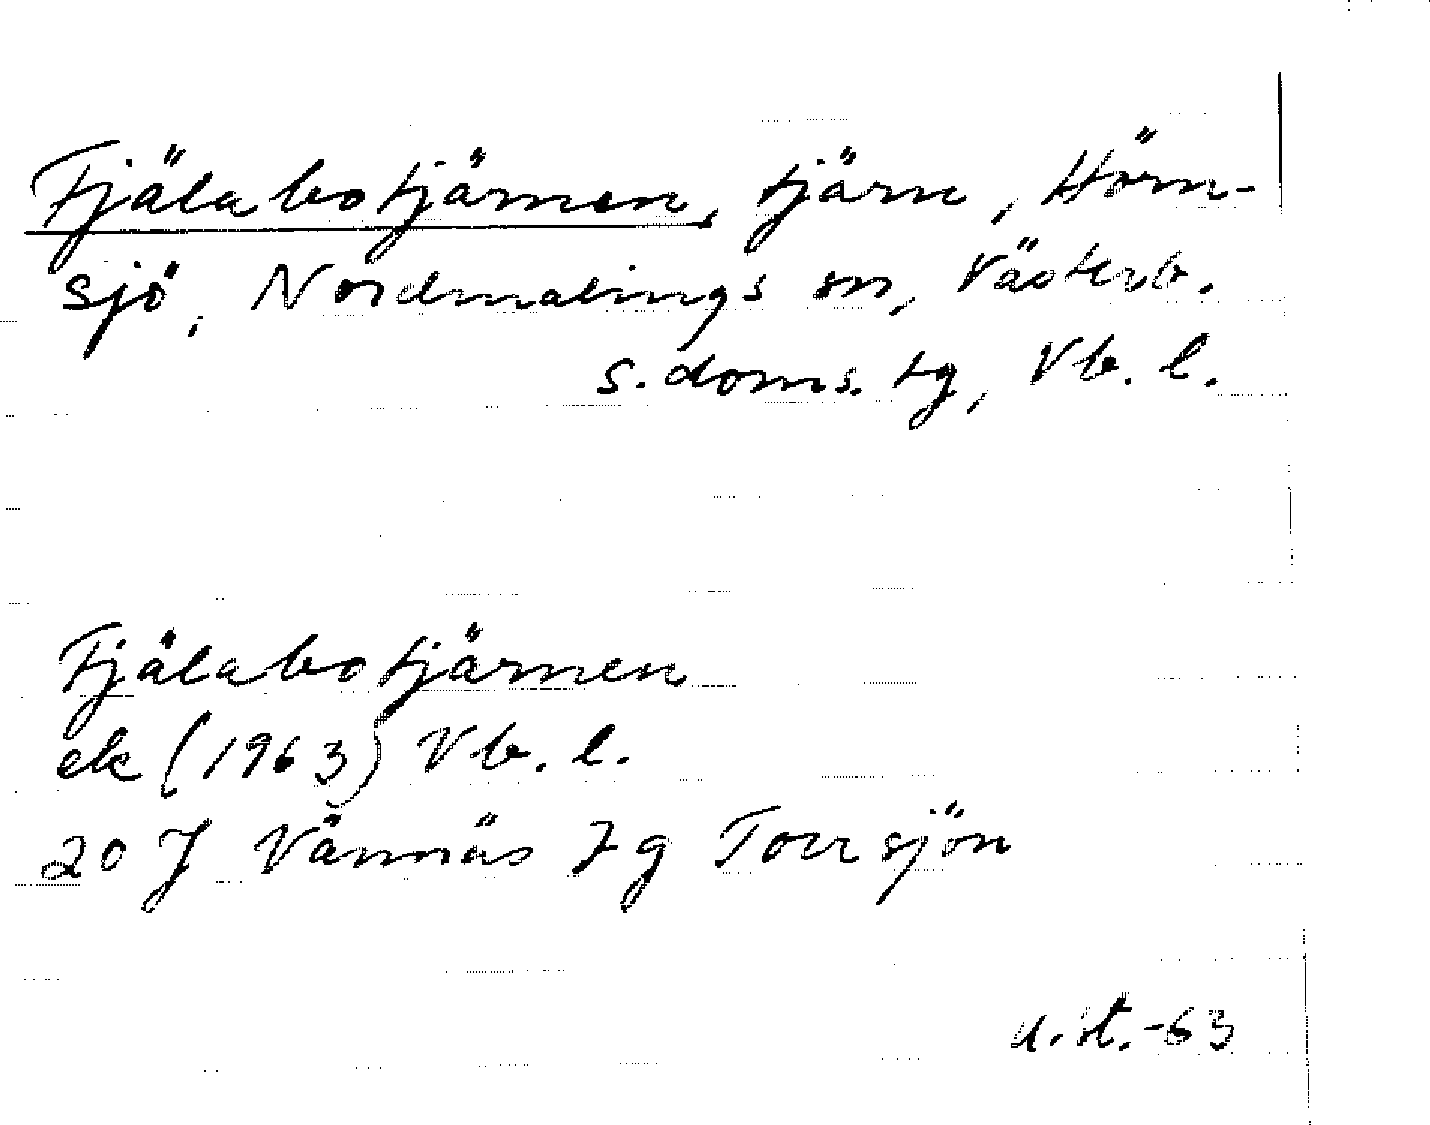 Fjälabotjärnen, tjärn, Hörn-
sjö, Nordmalings sn, Västerb.
s. doms. tg, Vb. l.
Fjälabotjärnen
ek (1963) Vb. l.
20 J Vännäs 7 g Torrsjön
-63